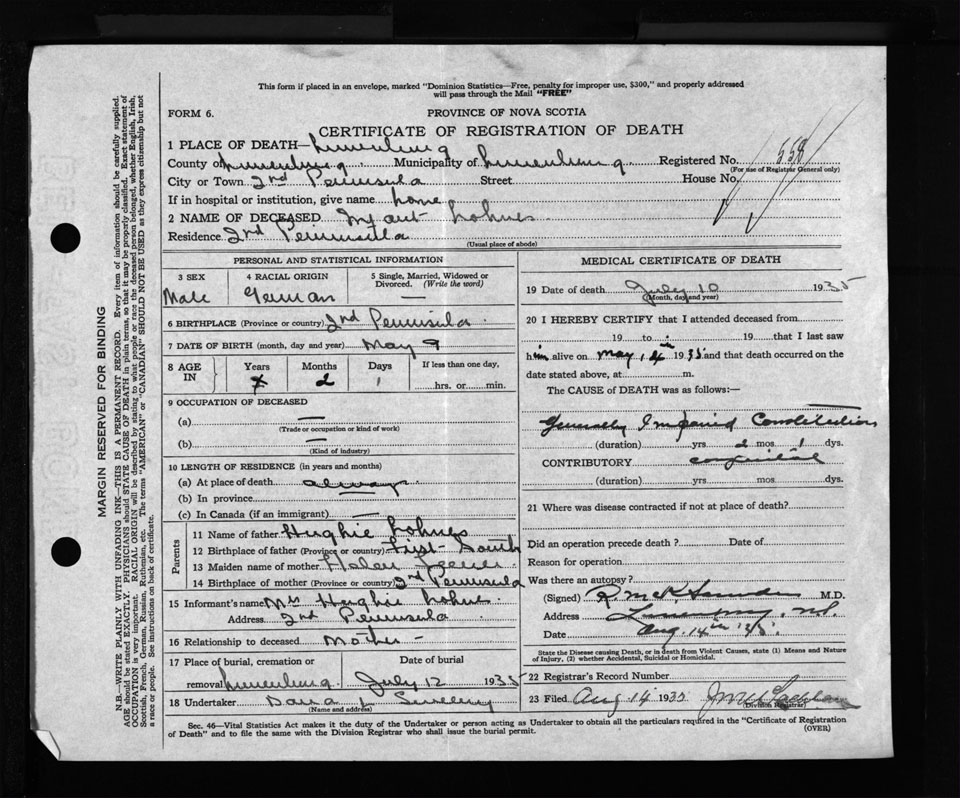 This form if placed in an envelope, marked "Dominion Statistics—Free, penalty for improper use, $300," and properly addressed
will pass through the Mail "FREE"
FORM 6.
PROVINCE OF NOVA SCOTIA
CERTIFICATE OF REGISTRATION OF DEATH
1 PLACE OF DEATH— Lunenburg
County of Lunenburg Municipality of Lunenburg Registered No. 558
(For use of Registrar General only)
City or Town 2nd Peninsula Street House No.
If in hospital or institution, give name home
2 NAME OF DECEASED Infant Lohnes
Residence 2nd Peninsula
(Usual place of abode)
PERSONAL AND STATISTICAL INFORMATION
3 SEX 4 RACIAL ORIGIN 5 Single, Married, Widowed or Divorced. (Write the word)
Male German —
6 BIRTHPLACE (Province or country) 2nd Peninsula
7 DATE OF BIRTH (month, day and year) May 9
8 AGE IN Years Months Days If less than one day,
2 1 hrs. or min.
9 OCCUPATION OF DECEASED
(a) —
(Trade or occupation or kind of work)
(b) —
(Kind of industry)
10 LENGTH OF RESIDENCE (in years and months)
(a) At place of death always
(b) In province
(c) In Canada (if an immigrant) —
Parents
11 Name of father Hughie Lohnes
12 Birthplace of father (Province or country) First South
13 Maiden name of mother Helen
14 Birthplace of mother (Province or country) 2nd Peninsula
15 Informant's name Mrs Hughie Lohnes
Address 2nd Peninsula
16 Relationship to deceased Mother
17 Place of burial, cremation or removal Lunenburg
Date of burial July 12 1935
18 Undertaker
(Name and address)
MEDICAL CERTIFICATE OF DEATH
19 Date of death July 10 1935
(Month, day and year)
20 I HEREBY CERTIFY that I attended deceased from
19 to 19 that I last saw
him alive on May 14th 1935 and that death occurred on the
date stated above, at m.
The CAUSE of DEATH was as follows:—
Generally Impaired Constitution
(duration) yrs 2 mos 1 dys.
CONTRIBUTORY congenital
(duration) yrs mos dys.
21 Where was disease contracted if not at place of death?
Did an operation precede death? Date of
Reason for operation
Was there an autopsy?
(Signed) R McK Saunders M.D.
Address Lunenburg, N.S.
Date Aug. 14th '35.
State the Disease causing Death, or in death from Violent Causes, state (1) Means and Nature
of Injury, (2) whether Accidental, Suicidal or Homicidal.
22 Registrar's Record Number
23 Filed Aug 14 1935
(Division Registrar)
Sec. 46—Vital Statistics Act makes it the duty of the Undertaker or person acting as Undertaker to obtain all the particulars required in the "Certificate of Registration
of Death" and to file the same with the Division Registrar who shall issue the burial permit.
(OVER)
MARGIN RESERVED FOR BINDING
N.B.—WRITE PLAINLY WITH UNFADING INK—THIS IS A PERMANENT RECORD. Every item of information should be carefully supplied.
AGE should be stated EXACTLY. PHYSICIANS should STATE CAUSE OF DEATH in plain terms, so that it may be properly classified. Exact statement of
OCCUPATION is very important. RACIAL ORIGIN will be described by stating to what people or race the deceased person belonged, whether English, Irish,
Scottish, French, German, Russian, Ruthenian, etc. The terms "AMERICAN" or "CANADIAN" SHOULD NOT BE USED as they express citizenship but not
a race or people. See instructions on back of certificate.